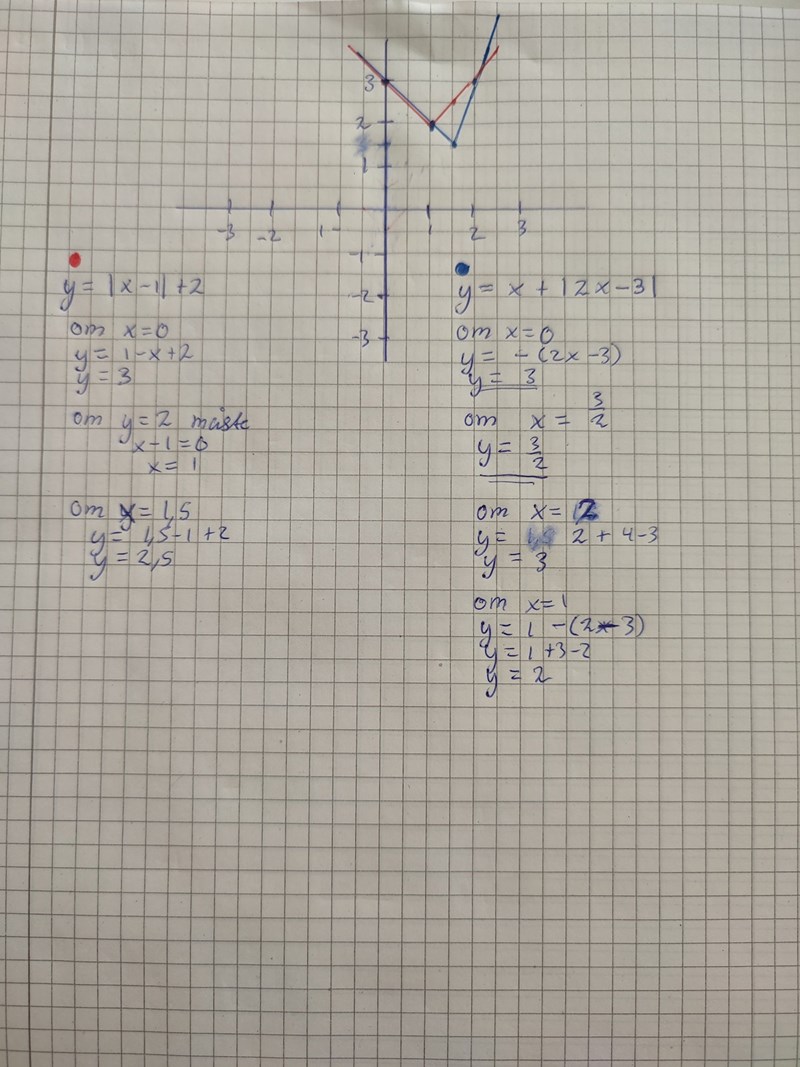 3
2
1
-3 -2 1- 1 2 3
-1
-2
-3
y = |x-1| + 2
om x=0
y = 1-x+2
y = 3
om y=2 måste
x-1=0
x= 1
om x= 1,5
y= 1,5-1 +2
y = 2,5
y = x + |2x-3|
om x=0
y = -(2x-3)
y = 3
om x = 3/2
y = 3/2
om x= 2
y = 2 + 4-3
y = 3
om x=1
y = 1 -(2-3)
y = 1 +3-2
y = 2